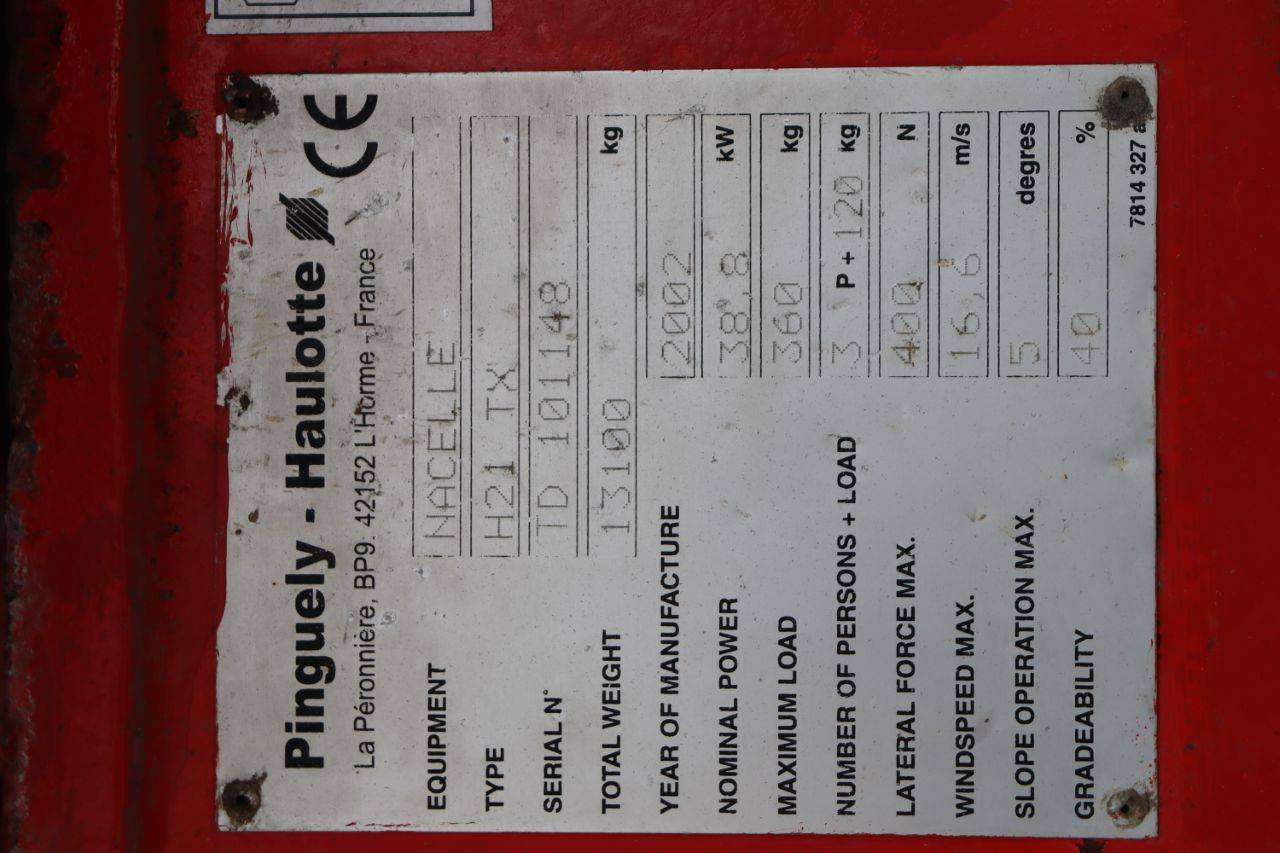 Pinguely - Haulotte CE
La Péronnière, BP9. 42152 L'Horme - France
EQUIPMENT NACELLE
TYPE H21 TX
SERIAL N° TD 101148
TOTAL WEIGHT 13100 kg
YEAR OF MANUFACTURE 2002
NOMINAL POWER 38,8 kW
MAXIMUM LOAD 360 kg
NUMBER OF PERSONS + LOAD 3 P + 120 kg
LATERAL FORCE MAX. 400 N
WINDSPEED MAX. 16,6 m/s
SLOPE OPERATION MAX. 5 degres
GRADEABILITY 40 %
7814 327 a